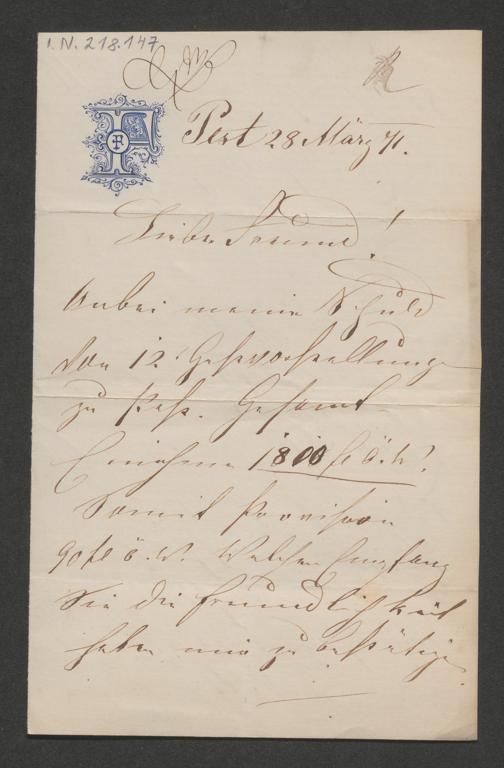 I.N. 218.147
F
Pest 28 März 71.
Lieber Freund!
Anbei meine Schuld
von 12 Gastvorstellungen
zu Pest. Gesamt
Einahme 1800 fl ö. W.
Somit Provision
90 fl ö. W. Welchen Empfang
Sie die Freundlichkeit
haben mir zu bestätigen